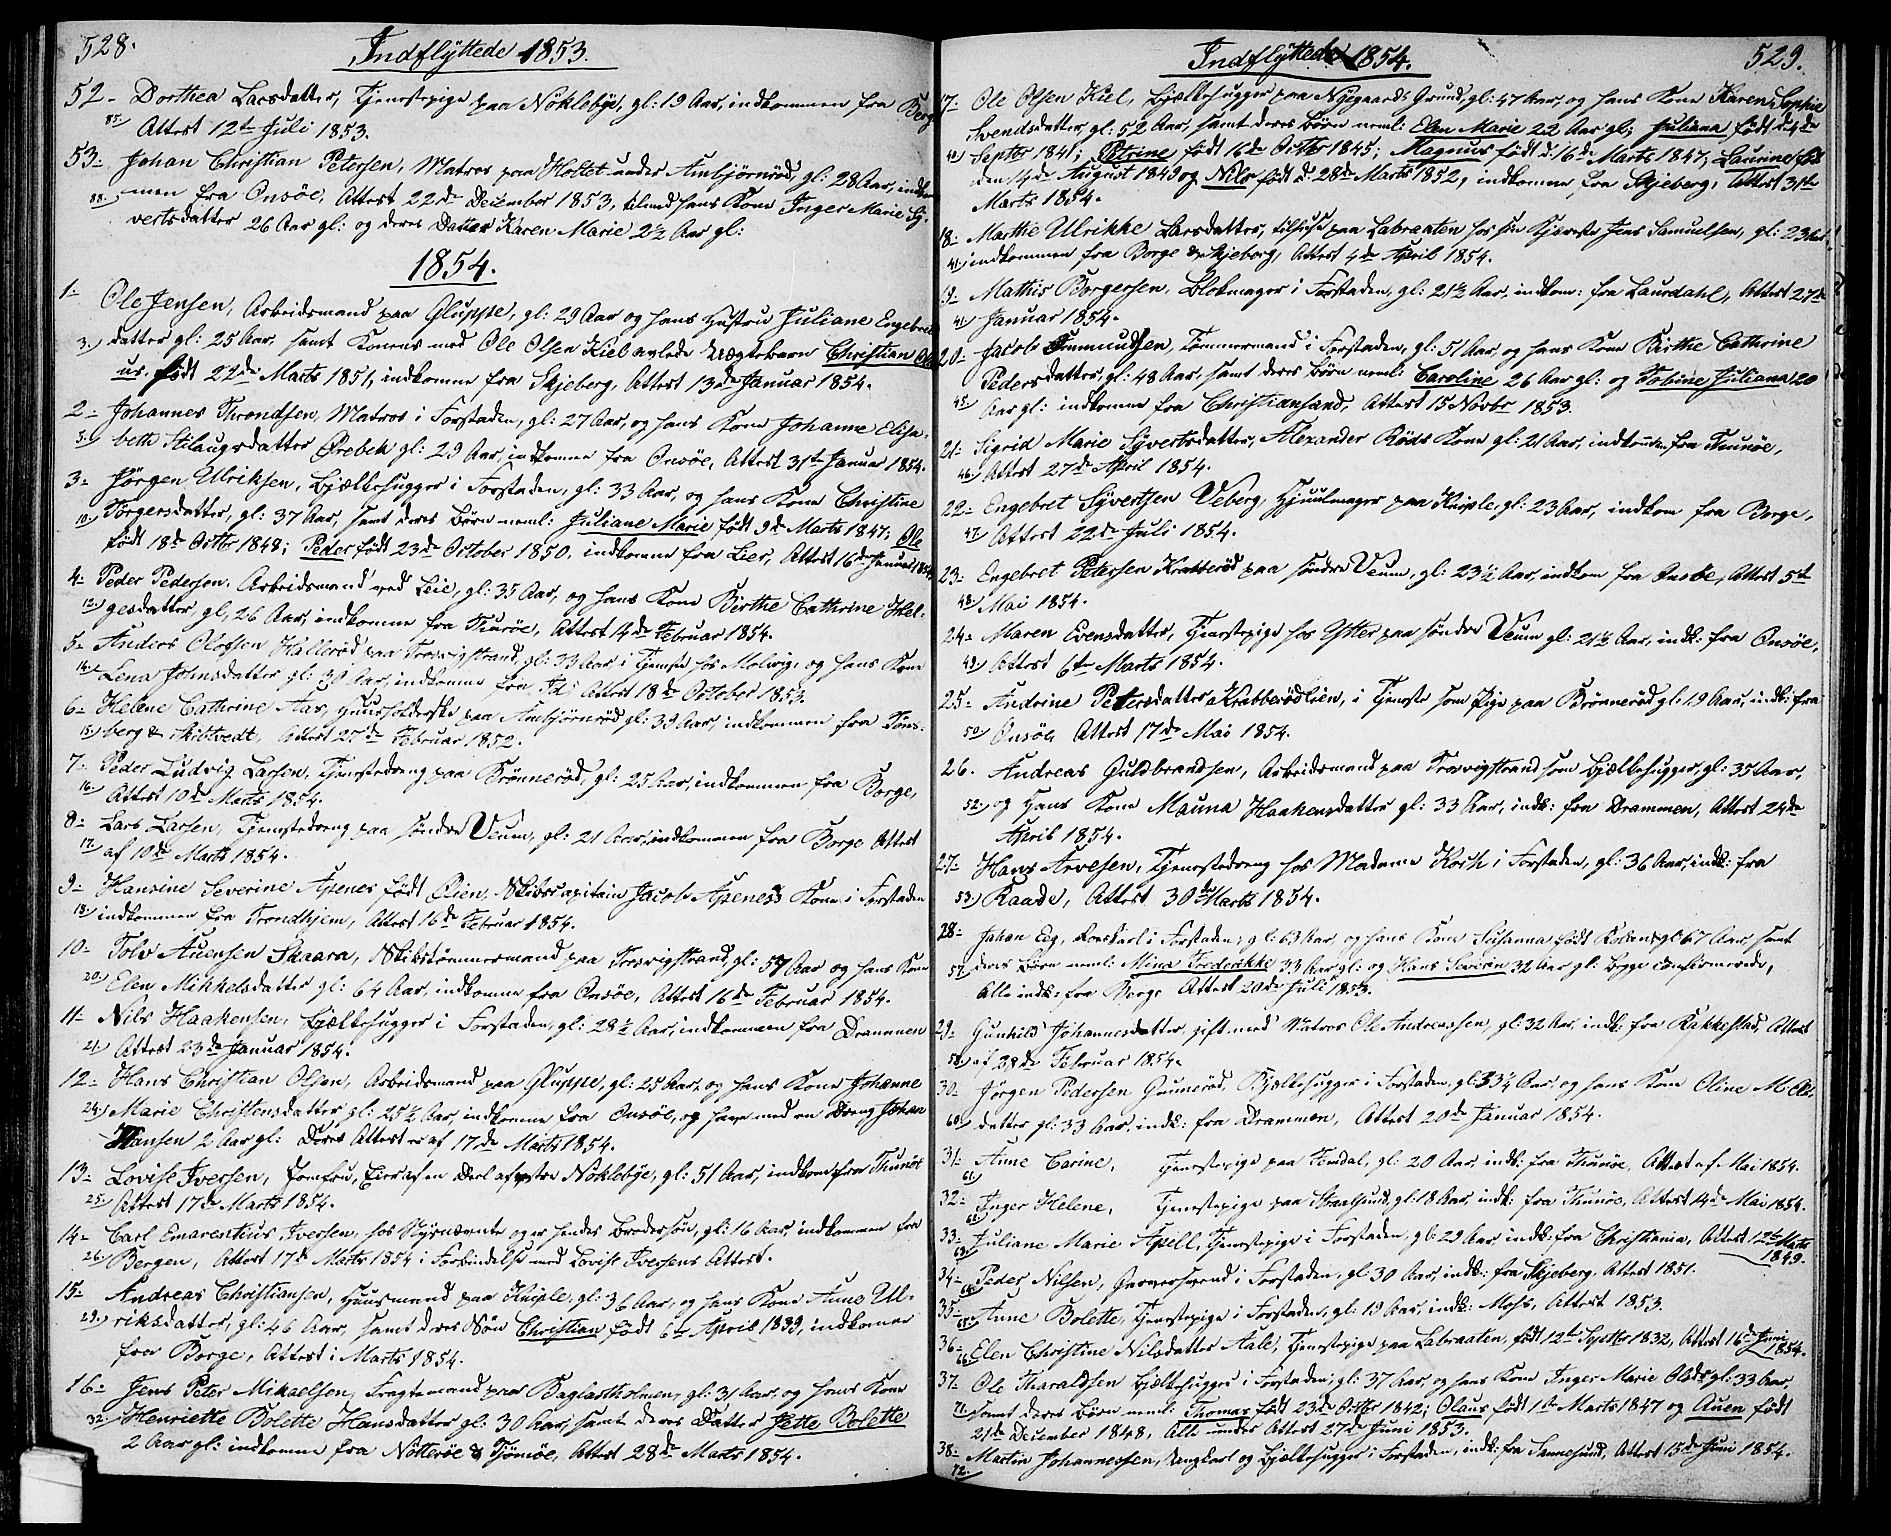 528.
Indflÿttede 1853.
52- Dorthea Larsdatter, Tjenestepige paa Nöklebÿe, gl: 19 Aar, indkommen fra Berg
85) Attest 12te Juli 1853.
53- Johan Christian Petersen, Matros paa Holtet under Ambjörnröd, gl: 28 Aar, indkom
88) men fra Onsöe, Attest 22de Dezember 1853, tilmed hans Kone Inger Marie Sÿ-
vertsdatter 26 Aar gl: og deres Datter Karen Marie 2½ Aar gl:
1854.
1- Ole Jensen, Arbeidsmand paa Gluppe, gl: 29 Aar og hans Hustru Juliane Engebret
3) datter gl: 25 Aar, samt Konens med Ole Olsen Kiel avlede Uægtebarn Christian Ola
us, födt 22de Marts 1851, indkomne fra Skjeberg, Attest 13de Januar 1854.
2- Johannes Throndsen, Matros i Forstaden, gl: 27 Aar, og hans Kone Johanne Elisa-
5) beth Stlaugsdatter Örebek gl: 29 Aar, indkomne fra Onsöe, Attest 31te Januar 1854.
3- Jörgen Ulriksen, Bjælkehugger i Forstaden, gl: 33 Aar, og hans Kone Christine
10) Törgersdatter, gl: 37 Aar, samt deres Börn neml: Juliane Marie födt 9de Marts 1847; Ole
födt 18de Octbr 1848; Peder födt 23de October 1850, indkomne fra Lier, Attest 16de Januar 1854
4- Peder Pedersen, Arbeidsmand ved Leie, gl: 35 Aar, og hans Kone Birthe Cathrine Hel-
12) gesdatter, gl, 26 Aar, indkomne fra Thunöe, Attest 14de Februar 1854.
5- Anders Olofsen Halleröd paa Trosvigstrand, gl: 33 Aar i Tjeneste hos Melvig, og hans Kone
14) Lena Johnsdatter gl: 30 Aar, indkomne fra Id, Attest 18de October 1853.
6- Helene Cathrine Aas, Huusholderske paa Ambjörnröd gl: 39 Aar, indkommen fra Töns-
15) berg & Skibtvedt, Attest 27de Februar 1852.
7- Peder Ludvig Larsen, Tjenestedreng paa Brönneröd, gl: 25 Aar, indkommen fra Borge,
16) Attest 10de Marts 1854.
8- Lars Larsen, Tjenestedreng paa söndre Veum, gl: 21 Aar, indkommen fra Borge Attest
17) af 10de Marts 1854.
9- Hansine Severine Apenes födt Öien, Skibscapitain Jacob Apenes's Kone i Forstaden
18) indkommen fra Trondhjem, Attest 16de Februar 1854.
10- Tolv Auensen Skaara, Skibstömmermand paa Trosvigstrand, gl: 57 Aar og hans Kone
20) Elen Mikkelsdatter gl: 64 Aar, indkomne fra Onsöe, Attest 16de Februar 1854.
11- Nils Haakensen, Bjælkehugger i Forstaden, gl: 28½ Aar, indkommen fra Drammen
21) Attest 23de Januar 1854.
12- Hans Christian Olsen, Arbeidsmand paa Gluppe, gl: 25 Aar, og hans Kone Johanne
24) Marie Christensdatter gl: 25½ Aar, indkomne fra Onsöe, og have med en Dreng Johan
Hansen 2 Aar gl: Deres Attest er af 17de Marts 1854.
13- Lovise Iversen, Jomfru, Eier af en Deel af vestre Nöklebÿe, gl: 51 Aar, indkom: fra Thunöe
25) Attest 17de Marts 1854.
14- Carl Emarentius Iversen, hos Nÿsnævnte og er hendes Brodersön, gl: 16 Aar, indkommen fra
26) Bergen, Attest 17de Marts 1854 i Forbindelse med Lovise Iversens Attest.
15- Andreas Christiansen, Huusmand paa Kniple, gl: 36 Aar, og hans Kone Anne Ul-
29) riksdatter, gl: 46 Aar, samt deres Sön Christian födt 6te April 1839, indkomne
fra Borge, Attest i Marts 1854.
16- Jens Peter Mikaelsen, Fragtemand paa Baglastholmen, gl: 31 Aar, og hans Kone
32) Henriette Bolette Hansdatter gl: 30 Aar, samt deres Datter Jette Bolette
2 Aar gl: indkomne fra Nötteröe & Tjömöe, Attest 28de Marts 1854.
Indflÿttede 1854.
529.
17- Ole Olsen Kiel, Bjælkehugger paa Nÿegaards Grund, gl: 47 Aar, og hans Kone Karen Sophie
Svendsdatter, gl: 52 Aar, samt deres Börn neml: Elen Marie 22 Aar gl; Juliana födt d. 4de
40) Septbr 1841; Petrine födt 16de Octbr 1845; Magnus födt d. 16de Marts 1847; Laurine föd
den 14de August 1849 og Nils födt d: 28de Marts 1852, indkomne fra Skjeberg, Attest 31te
Marts 1854.
18- Marthe Ulrikke Larsdatter, tilhuse paa Labraaten hos sin Kjæreste Jens Samuelsen, gl: 23 Aar
41) indkommen fra Borge & Skjeberg, Attest 4de April 1854.
19- Mathis Borgersen, Blokmager i Forstaden, gl: 21½ Aar, indkom: fra Laurdahl, Attest 27de
41) Januar 1854.
20- Jacob Emmundsen, Tömmermand i Forstaden, gl: 51 Aar, og hans Kone Birthe Cathrine
Pedersdatter, gl: 48 Aar, samt deres Börn neml: Caroline 26 Aar gl: og Tobine Juliana 20
45) Aar gl: indkomne fra Christiansand, Attest 15 Novbr 1853.
21- Sigrid Marie Sÿvertsdatter, Alexander Röds Kone gl: 21 Aar, indkommen fra Thunöe,
46) Attest 27de April 1854.
22- Engebret Sÿvertsen Veberg, Hjuulmager paa Kniple, gl: 23 Aar, indkom fra Borge,
47) Attest 22de Juli 1854.
23- Engebret Petersen Krabberöd paa söndre Veum, gl: 23½ Aar, indkom fra Onsöe, Attest 5te
48) Mai 1854.
24- Maren Evensdatter, Tjenestepige hos Ytter paa söndre Veum gl: 21½ Aar, indk: fra Onsöe,
49) Attest 6te Marts 1854.
25- Andrine Petersdatter Krabberödlien, i Tjeneste som Pige paa Brönneröd gl: 19 Aar, indk: fra
50) Onsöe Attest 17de Mai 1854.
26. Andreas Guldbrandsen, Arbeidsmand paa Trosvigstrand som Bjælkehugger, gl: 35 Aar,
52) og Hans Kone Mauna Haakensdatter gl: 33 Aar, indk: fra Drammen, Attest 24de
April 1854.
27- Hans Arvesen, Tjenestedreng hos Madame Koch i Forstaden, gl: 36 Aar, indk: fra
53) Raade, Attest 30te Marts 1854.
28- Johan Eeg, i Forstaden, gl: 63 Aar, og hans Kone Susanna födt gl: 67 Aar, samt
57) deres Börn neml: Mina Frederikke 33 Aar gl: og Hans Severin 32 Aar gl: begge confirmerede,
Alle indk: fra Berge Attest 20de Juli 1853.
29- Gunhild Johannesdatter, gift med Matros Ole Andreassen, gl: 32 Aar, indk: fra Rakkestad, Attest
58) af 28de Februar 1854.
30- Jörgen Pedersen Guneröd, Bjælkehugger i Forstaden, gl: 33½ Aar, og hans Kone Oline M. Ols-
60) datter gl: 33 Aar, indk: fra Drammen, Attest 20de Januar 1854.
31- Anne Carine, Tjenestepige paa Femdal, gl: 20 Aar, indk: fra Thunöe, Attest af Mai 1854.
61)
32- Inger Helene, Tjenestepige paa Staalsund, gl: 18 Aar, indk: fra Thunöe, Attest 14de Mai 1854.
62)
33- Juliane Marie Apell, Tjenestepige i Forstaden, gl: 29 Aar, indk: fra Christiania, Attest 12te Marts
63) 1849.
34- Peder Nilsen, Garversvend i Forstaden, gl: 30 Aar, indk: fra Skjeberg, Attest 1851.
64)
35- Anne Bolette, Tjenestepige i Forstaden, gl: 19 Aar, indk: Moss, Attest 1853.
65)
36- Elen Christine Nilsdatter Aale, Tjenestepige paa Labraaten, födt 12te Septbr 1832, Attest 16de Juni 1854.
66)
37- Ole Tharaldsen Bjælkehugger i Forstaden, gl: 37 Aar, og hans Kone Inger Marie Olsdr gl: 33 Aar,
71) samt deres Börn neml: Thomas födt 23de Octbr 1842; Olaus födt 1te Marts 1847 og Auen födt
21de December 1848, Alle under Attest 27de Juni 1853.
38- Martin Johannessen, Ungkarl og Bjælkehugger i Forstaden, indk: fra Sannesund, Attest 15de Juni 1854.
72.